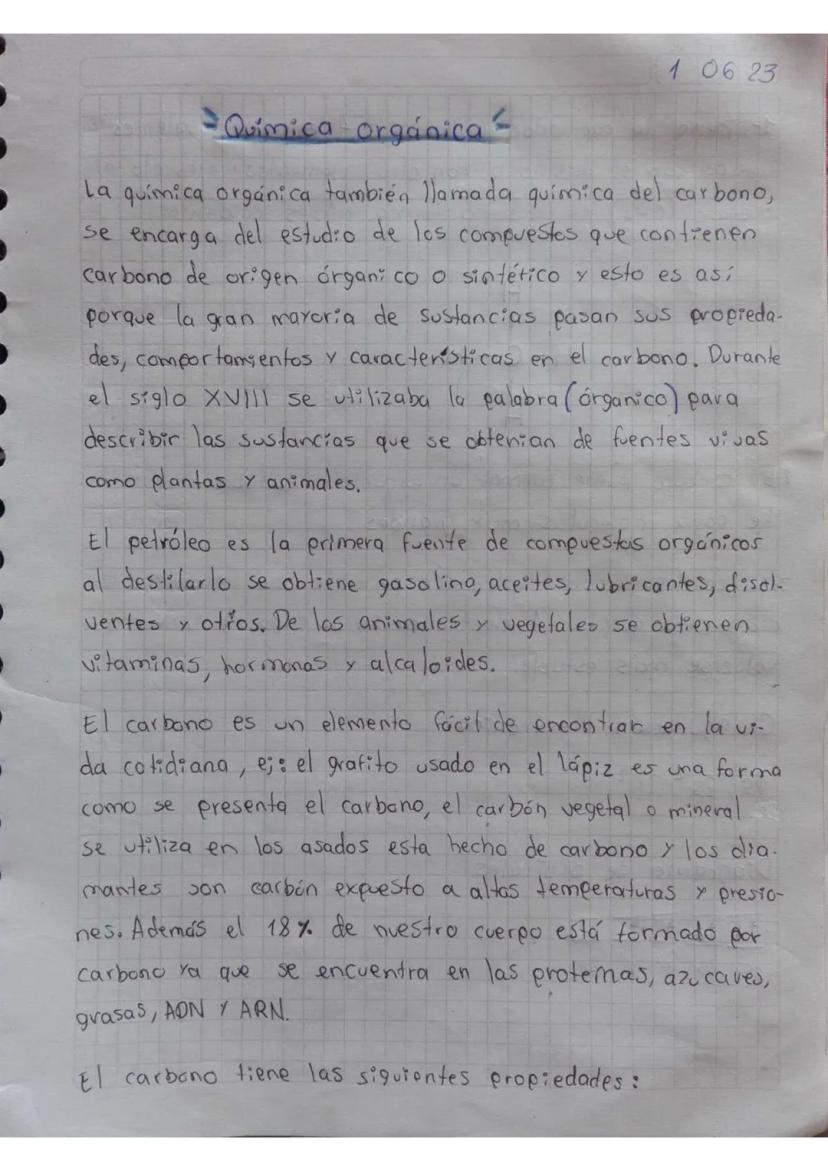 1 06 23
Química orgánica
La química orgánica también llamada química del carbono,
se encarga del estudio de los compuestos que contienen
carbono de origen órganico o sintético y esto es así
porque la gran mayoria de sustancias pasan sus propieda-
des, comportamientos y características en el carbono. Durante
el siglo XVIII se utilizaba la palabra (órganico) para
describir las sustancias que se obtenian de fuentes vivas
como plantas y animales.
El petróleo es la primera fuente de compuestos orgánicos
al destilarlo se obtiene gasolina, aceites, lubricantes, disol-
ventes y otros. De los animales y vegetales se obtienen
vitaminas, hormonas y alcaloides.
El carbono es un elemento fácil de encontrar en la vi-
da cotidiana, ej: el grafito usado en el lápiz es una forma
como se presenta el carbono, el carbón vegetal o mineral
se utiliza en los asados esta hecho de carbono y los dia-
mantes son carbón expuesto a altas temperaturas y presio-
nes. Además el 18% de nuestro cuerpo está formado por
carbono ya que se encuentra en las proteínas, azucares,
grasas, ADN Y ARN.
El carbono tiene las siguientes propiedades: